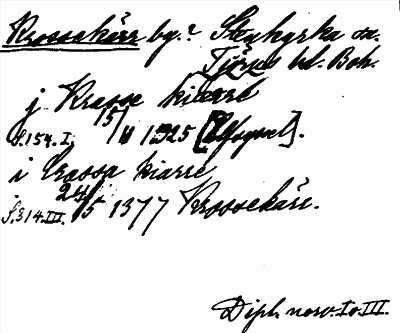 Krossekärr by.? Stenkyrka sn.
Tjörns hd. Boh.
j Krasse kiærre
S. 154. I. 15/11 1325 [Afognel].
i Crossa kiarre
S. 314. III. 24/5 1377 Krossekärr.
Dipl. norv. I o. III.